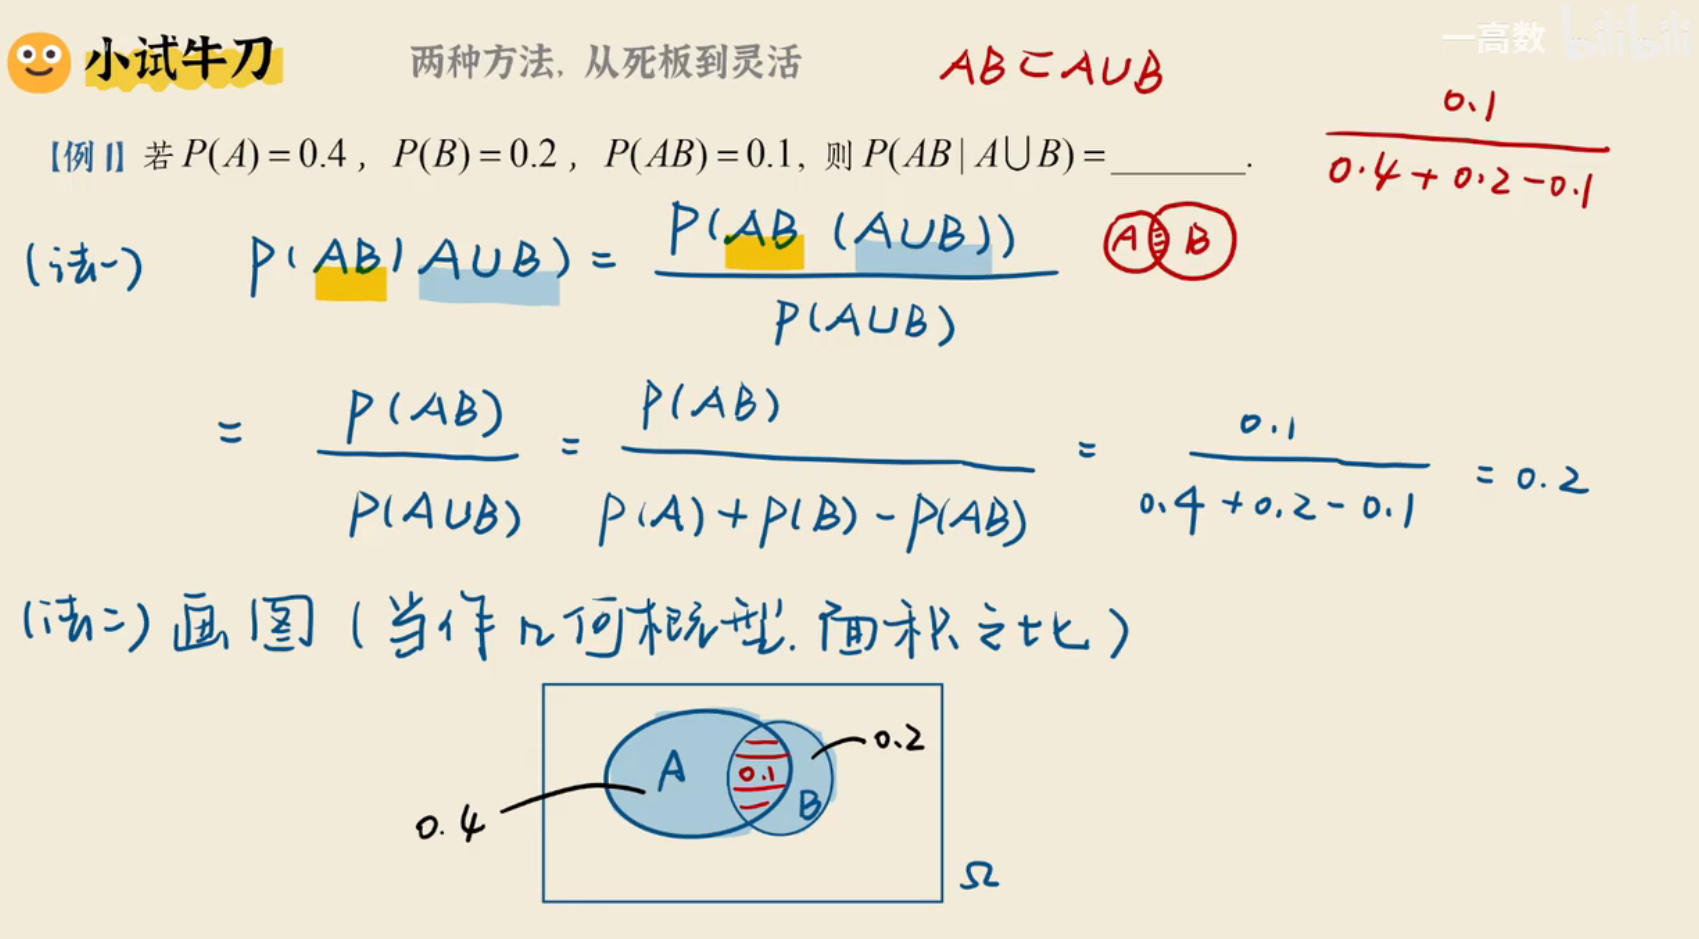 小试牛刀 两种方法, 从死板到灵活 AB⊂A∪B 一高数 bilibili
【例1】若 P(A)=0.4, P(B)=0.2, P(AB)=0.1, 则 P(AB|A∪B)=______.
0.1
0.4+0.2-0.1
(法一) P(AB|A∪B)=
P(AB(A∪B))
P(A∪B)
A B
= P(AB)
P(A∪B)
= P(AB)
P(A)+P(B)-P(AB)
= 0.1
0.4+0.2-0.1
=0.2
(法二)画图(当作几何概型.面积之比)
A 0.1 B 0.2
0.4
Ω